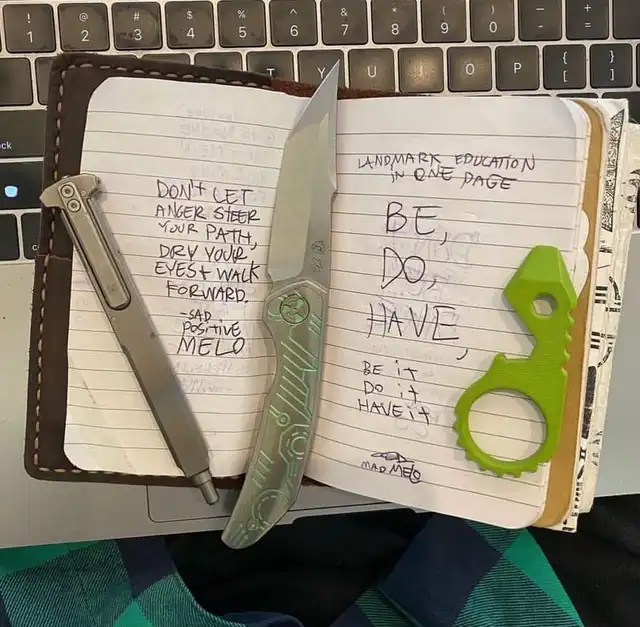 ! 1
@ 2
# 3
$ 4
% 5
^ 6
& 7
* 8
( 9
) 0
_ -
+ =
T Y U I O P { [ } ]
DON'T LET
ANGER STEER
YOUR PATH,
DRY YOUR
EYES + WALK
FORWARD.
-SAD
POSITIVE
MELO
LANDMARK EDUCATION
IN ONE PAGE
BE,
DO,
HAVE,
BE it
DO it
HAVE it
MAD MELO